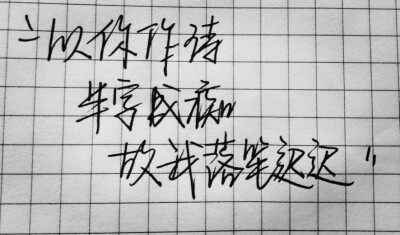 "以你作诗
半字成痴
故我落笔迟迟"